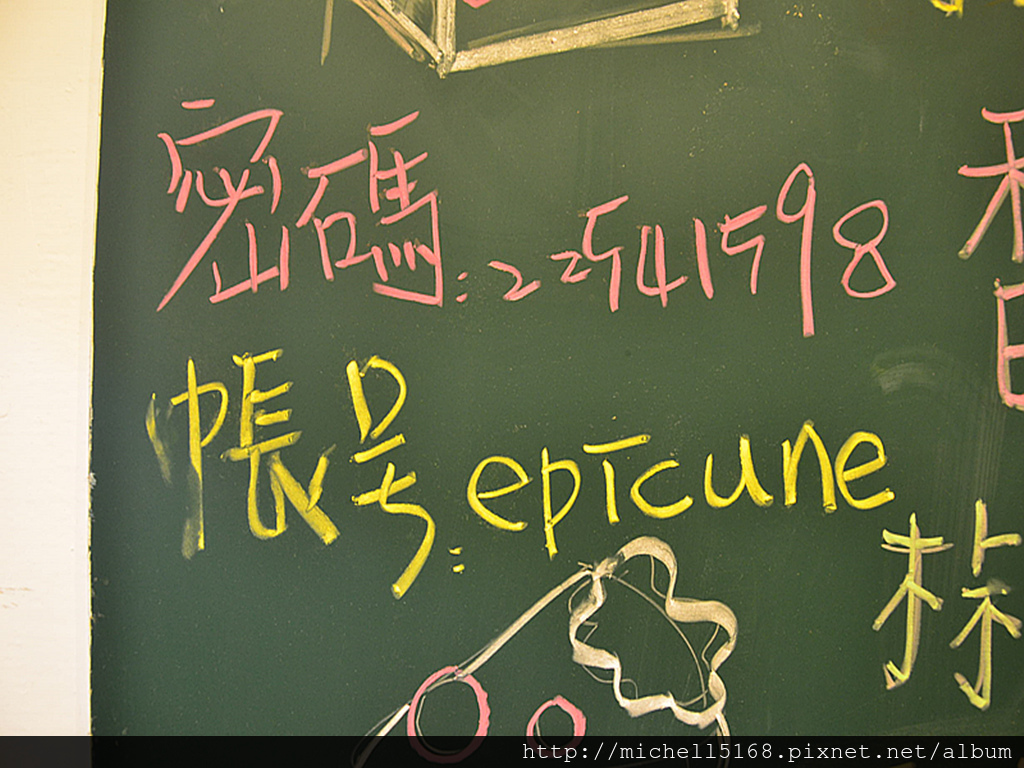 密碼:22541598
帳号:epicune
http://michell5168.pixnet.net/album